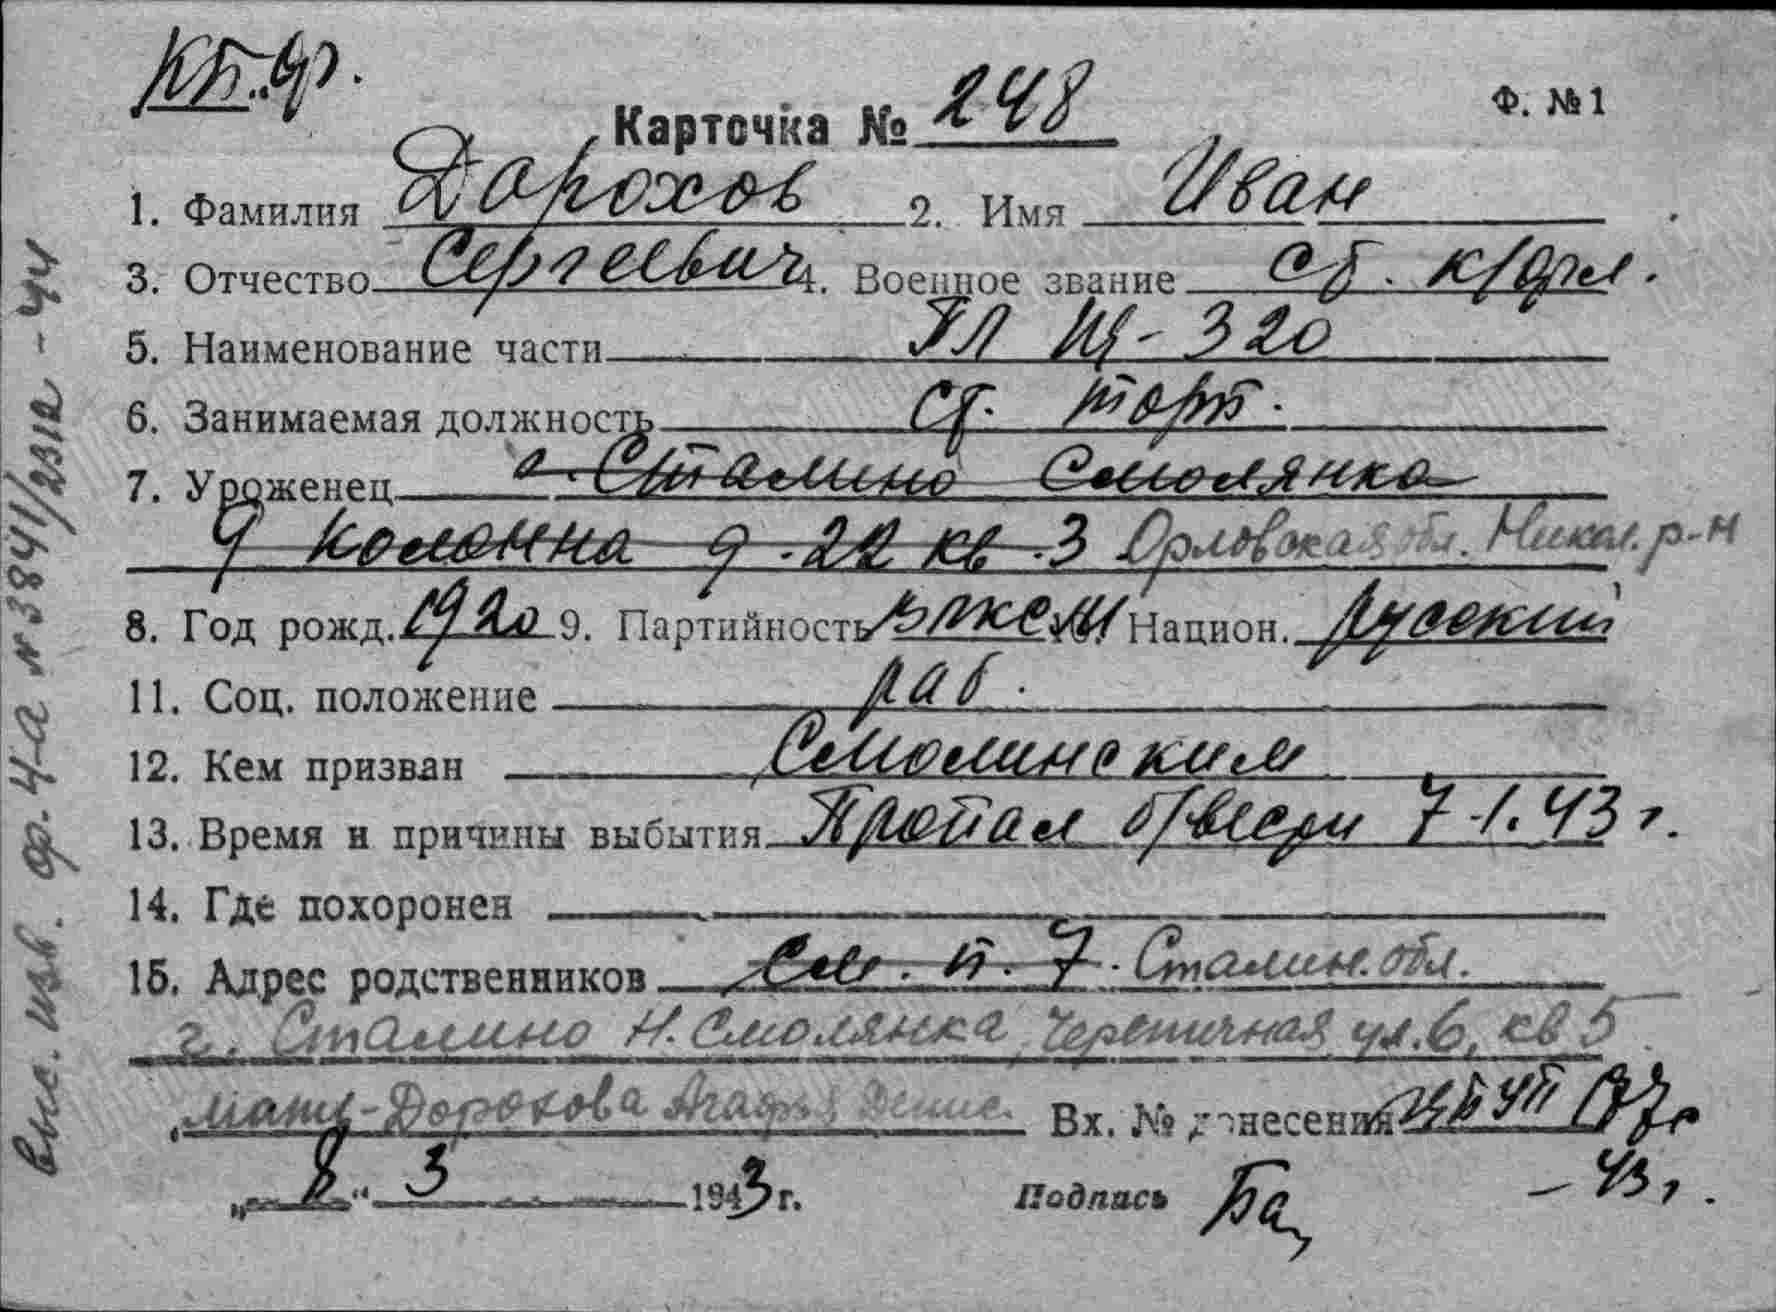 КБ. ф.
Карточка № 248
Ф. № 1
1. Фамилия Дорохов 2. Имя Иван
3. Отчество Сергеевич 4. Военное звание Ст. к/фл.
5. Наименование части ПЛ Щ-320
6. Занимаемая должность ст. торп.
7. Уроженец г. Сталино Смолянка
9 Колонна д. 22 кв. 3 Орловская обл. Никол. р-н
8. Год рожд. 1920 9. Партийность ВЛКСМ Национ. русский
11. Соц. положение раб.
12. Кем призван Смолинским
13. Время и причины выбытия Пропал б/вести 7.1.43 г.
14. Где похоронен
15. Адрес родственников См. п. 7. Сталин. обл.
г. Сталино Н. Смолянка, Черепичная ул. 6, кв 5
мать - Дорохова Агафья Денис. Вх. № донесения
„8“ 3 1943 г. Подпись Ба
- 43 г.
Выс. изв. ф. 4-а № 3841/2312 - 44